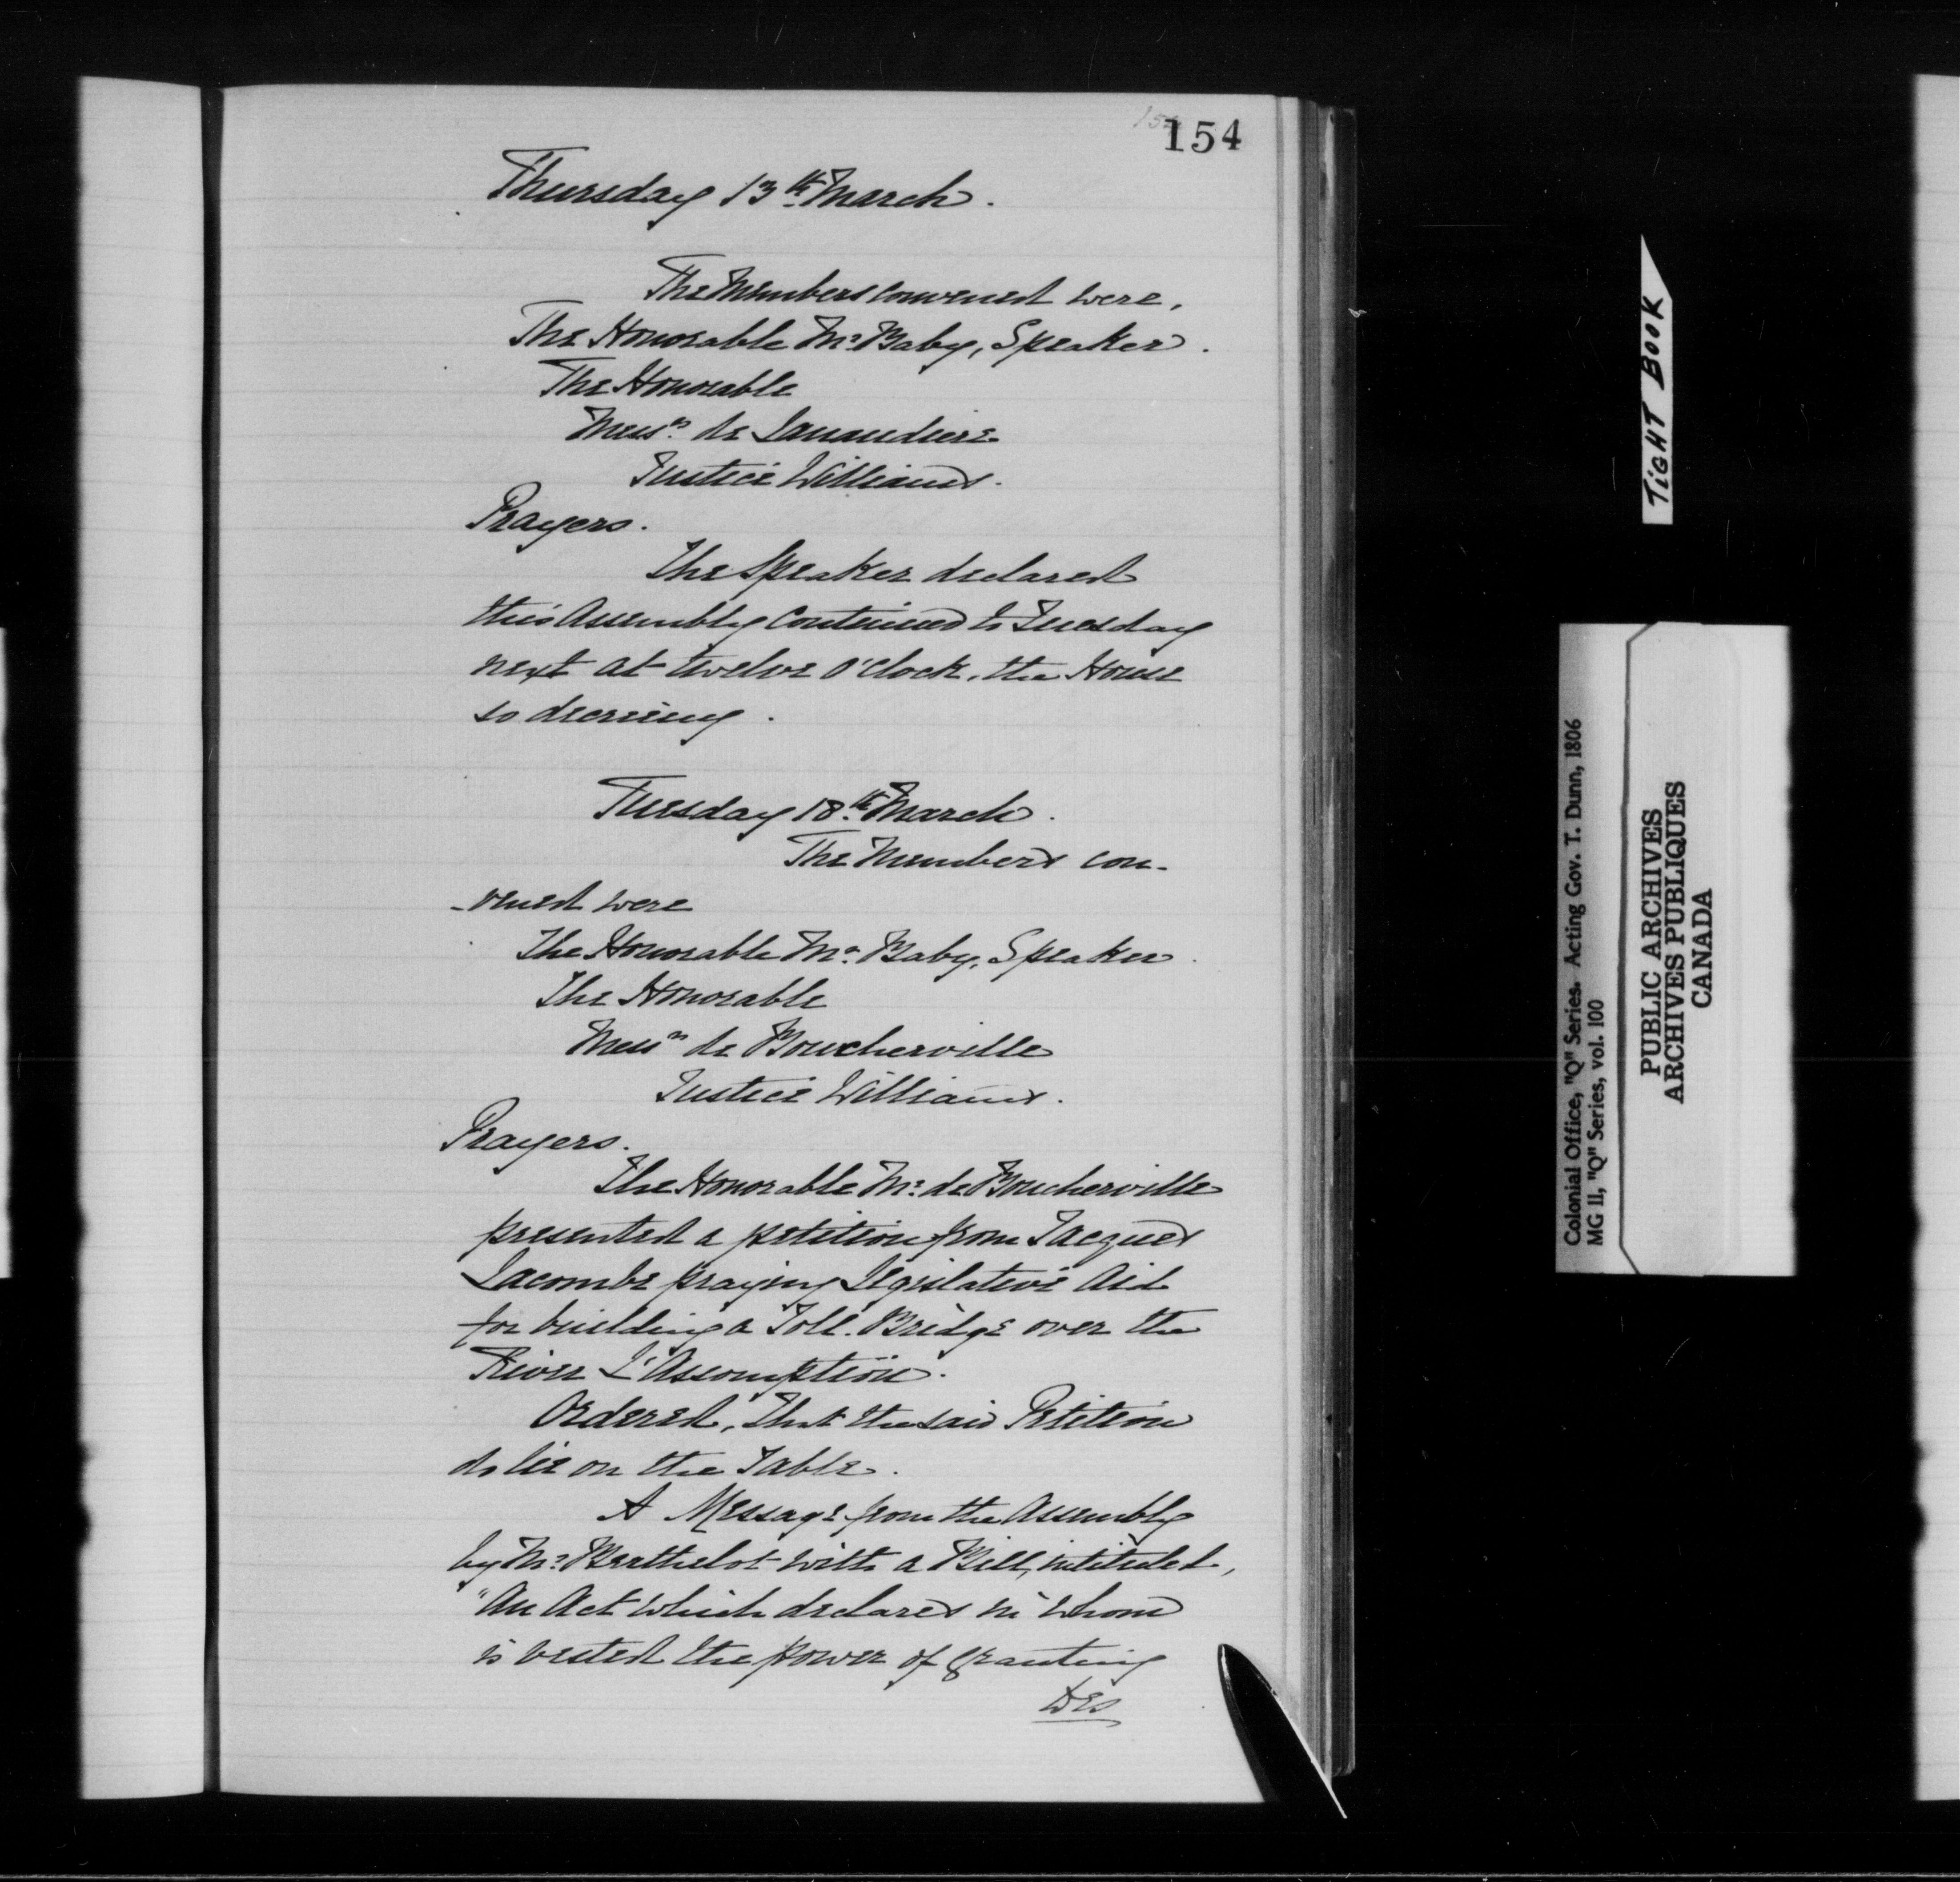 154
154
Thursday 13th March.
The Members convened were,
The Honorable Mr. Baby, Speaker.
The Honorable
Messrs. de Lanaudiere
Justice Williams.
Prayers.
The Speaker declared
this Assembly continued to Tuesday
next at twelve o'clock, the House
so decreeing.
Tuesday 18th March.
The Members con-
-vened were
The Honorable Mr. Baby, Speaker.
The Honorable
Messrs de Boucherville
Justice Williams.
Prayers.
The Honorable Mr. de Boucherville
presented a petition from Jacques
Lacombe praying Legislative Aid
for building a Toll. Bridge over the
River L'Assomption.
Ordered, That the said Petition
do lie on the Table.
A Message from the Assembly
by Mr. Berthelot with a Bill, intituled,
"An Act which declares in whom
is vested the power of granting
TIGHT BOOK
Colonial Office, "Q" Series. Acting Gov. T. Dunn, 1806
MG 11, "Q" Series, vol. 100
PUBLIC ARCHIVES
ARCHIVES PUBLIQUES
CANADA